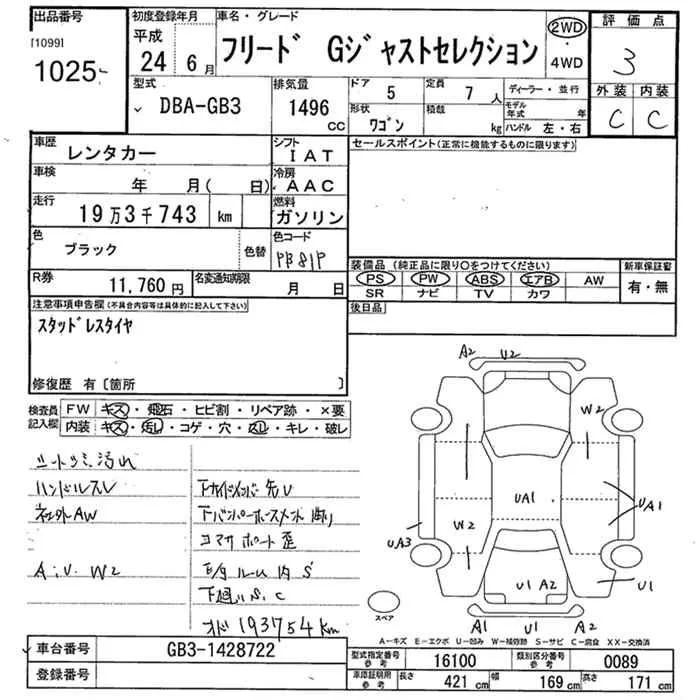 出品番号
[1099]
1025
初度登録年月
平成
24年 6月
車名・グレード
フリード Gジャストセレクション
2WD
・
4WD
評価点
3
外装 内装
C C
型式
DBA-GB3
排気量
1496
CC
ドア
5
定員
7人
形状
ワゴン
積載
kg
ディーラー・並行
モデル年式 年
ハンドル 左・右
車歴
レンタカー
シフト
IAT
車検
年 月( 日)
冷房
AAC
走行
19万3千743 km
燃料
ガソリン
色
ブラック
色替
色コード
PB81P
R券
11,760円
名変通知期限
月 日
セールスポイント(正常に機能するものに限ります)
装備品 (純正品に限り○をつけてください)
新車保証書
PS PW ABS エアB AW
SR ナビ TV カワ
有・無
後日品
注意事項申告欄(不具合内容等は具体的に記入して下さい)
スタッドレスタイヤ
修復歴 有〔箇所 〕
検査員記入欄
FW キズ・飛石・ヒビ割・リペア跡・×要
内装 キズ・汚レ・コゲ・穴・スレ・キレ・破レ
シートシミ汚れ
ハンドルスレ
社外AW
A.U.W2
下バンパーホースメント
コアサポート歪
E/gルーム内S
下廻りS.C
オド193754Km
A2 U2
W2
UA1
UA1
W2
UA3
U1 A2
U1
A1 U1 A2
スペア
A-キズ E-エクボ U-凹み W-補修跡 S-サビ C-腐食 XX-交換済
車台番号
GB3-1428722
登録番号
型式指定番号
参考
16100
類別区分番号
参考
0089
車庫証明用
参考
長さ
421 cm
幅
169 cm
高さ
171 cm